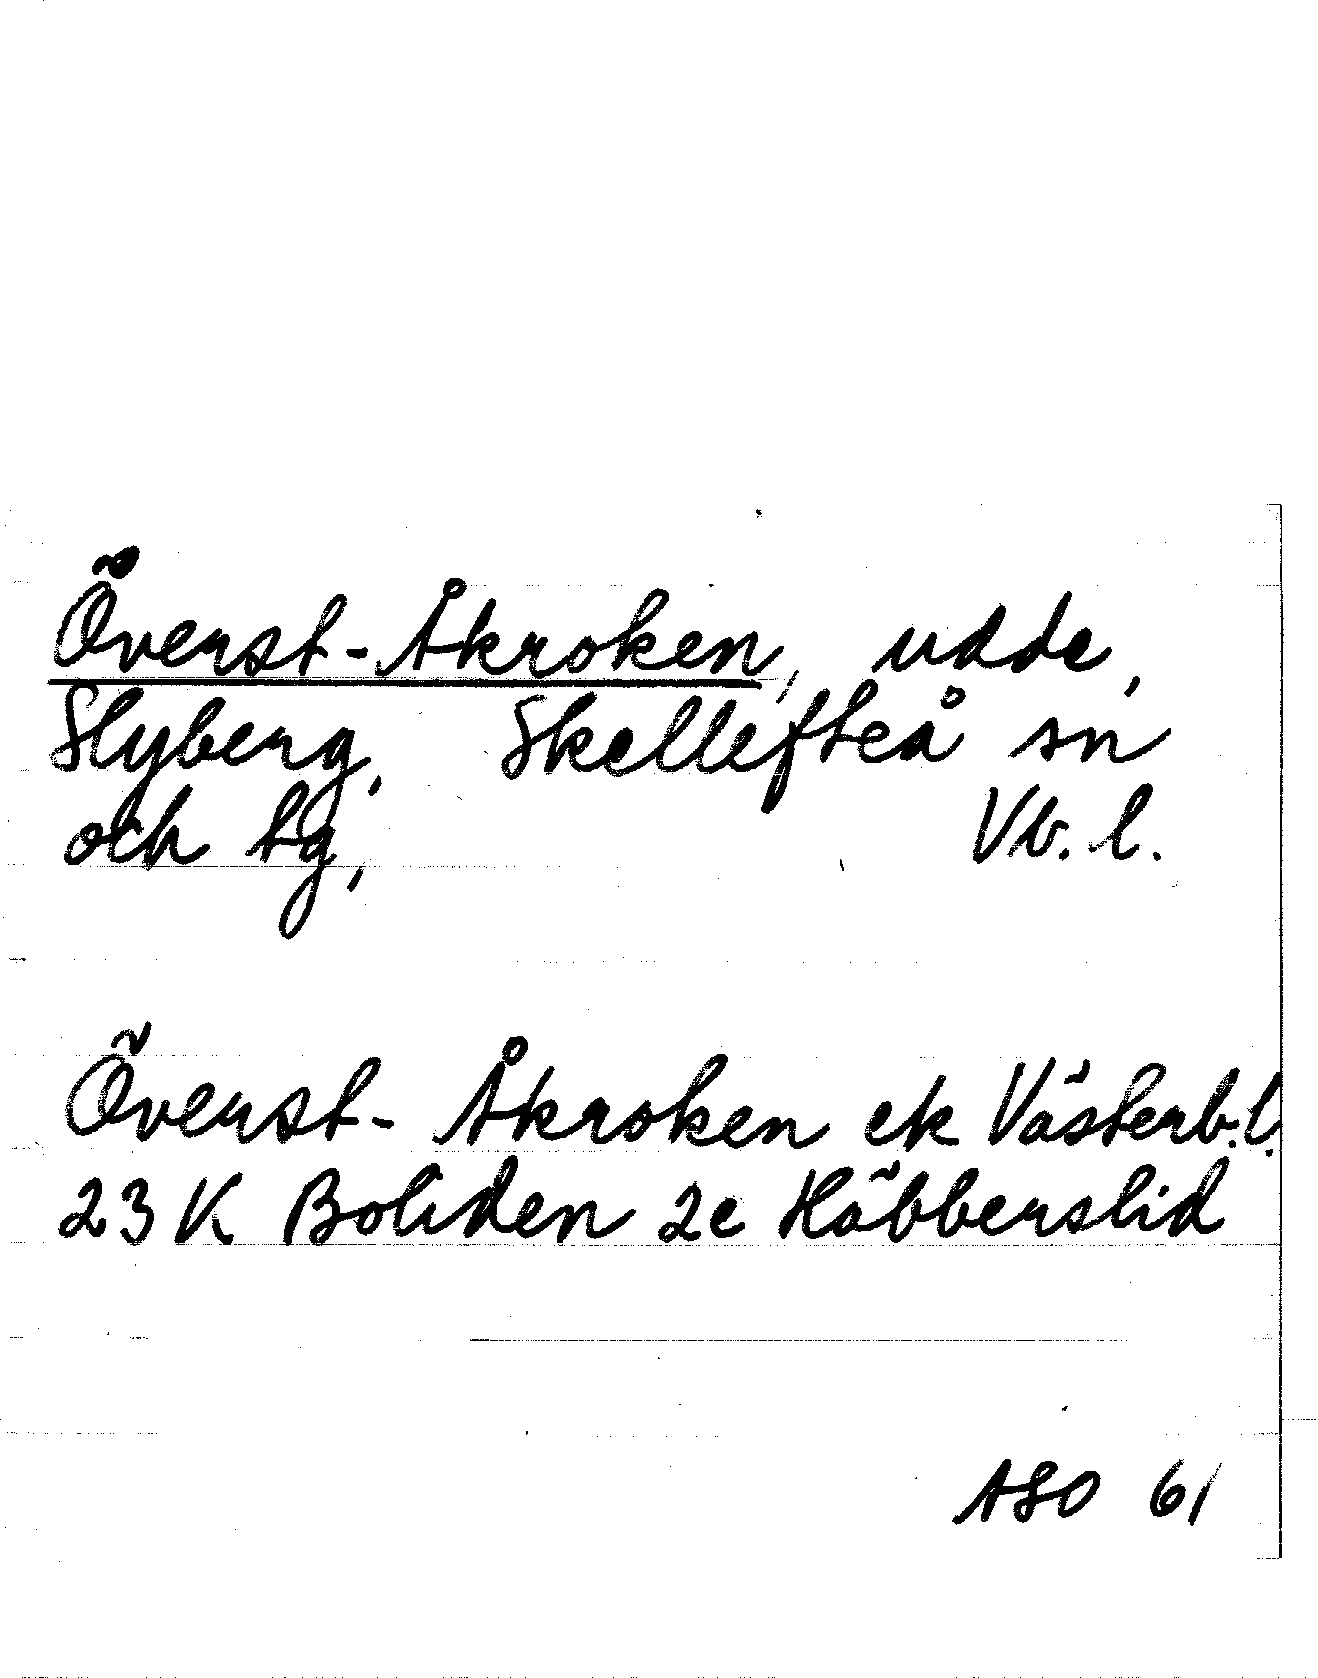 Överst-Åkroken, udde,
Slyberg, Skellefteå sn
och tg, Vb. l.
Överst- Åkroken ek Västerb.l.
23 K Boliden 2e Häbberslid
ASO 61